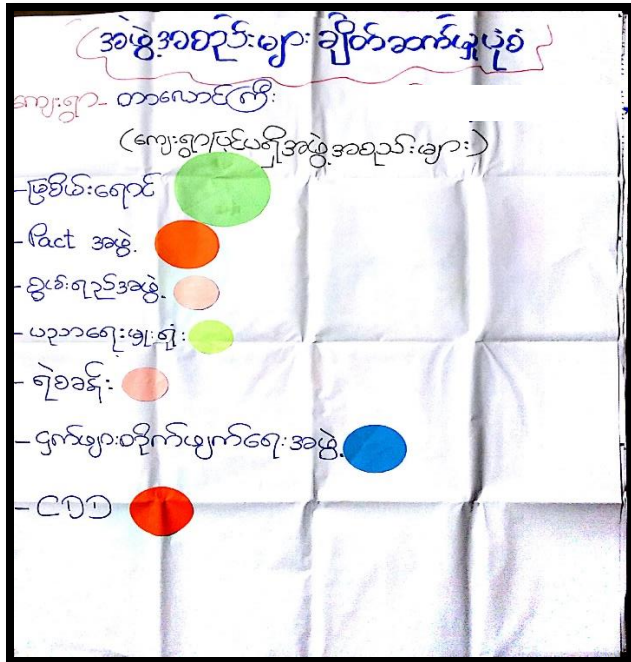 အဖွဲ့အစည်းများ ချိတ်ဆက်မှုပုံစံ
ကျေးရွာ- တာလောင်ကြီး
(ကျေးရွာပြင်ပရှိအဖွဲ့အစည်းများ)
- မြစိမ်းရောင်
- Pact အဖွဲ့
- စွမ်းရည်အဖွဲ့
- ပညာရေးမှူးရုံး
- ရဲစခန်း
- ငှက်ဖျားတိုက်ဖျက်ရေးအဖွဲ့
- CDD